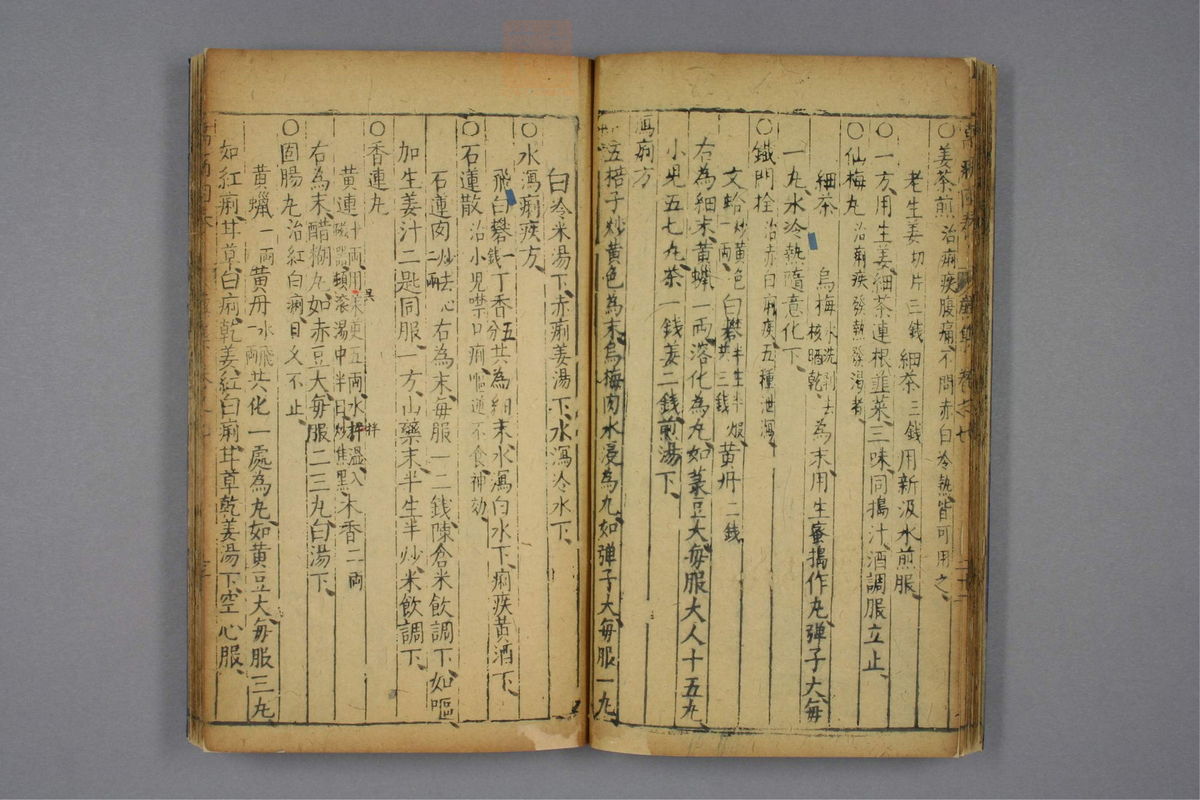 ○姜茶煎治痢疾腹痛不問赤白冷熱皆可用之
老生姜切片三錢細茶三錢用新汲水煎服
○一方用生姜細茶連根韮菜三味同搗汁酒調服立止
○仙梅丸治痢疾發熱發渴者
細茶 烏梅水洗剥去核晒乾為末用生蜜搗作丸弹子大每
一丸水冷熱隨意化下
○鐵門栓治赤白痢疾五種泄瀉
文蛤炒黄色一兩白礬半生半煅共三錢黄丹二錢
右為細末黄蠟一両溶化為丸如菉豆大每服大人十五丸
小児五七丸茶一錢姜二錢煎湯下
瀉痢方
五棓子炒黄色為末烏梅肉水浸為丸如弹子大每服一丸
白冷米湯下赤痢姜湯下水瀉冷水下
○水瀉痢疾方
飛白礬一錢丁香五分共為細末水瀉白水下痢疾黄酒下
○石蓮散治小児噤口痢嘔逆不食神効
石蓮肉炒去心二兩右為末每服一二錢陳倉米飲調下如嘔
加生姜汁二匙同服一方山藥末半生半炒米飲調下
○香連丸
黄連十両用吴茱萸五両水拌湿入磁器頓滚湯中半日炒焦黑木香二両
右為末醋糊丸如赤豆大每服二三丸白湯下
○固腸丸治紅白痢日久不止
黄蠟一両黄丹水飛一両共化一處為丸如黄豆大每服三丸
如紅痢甘草白痢乾姜紅白痢甘草乾姜湯下空心服